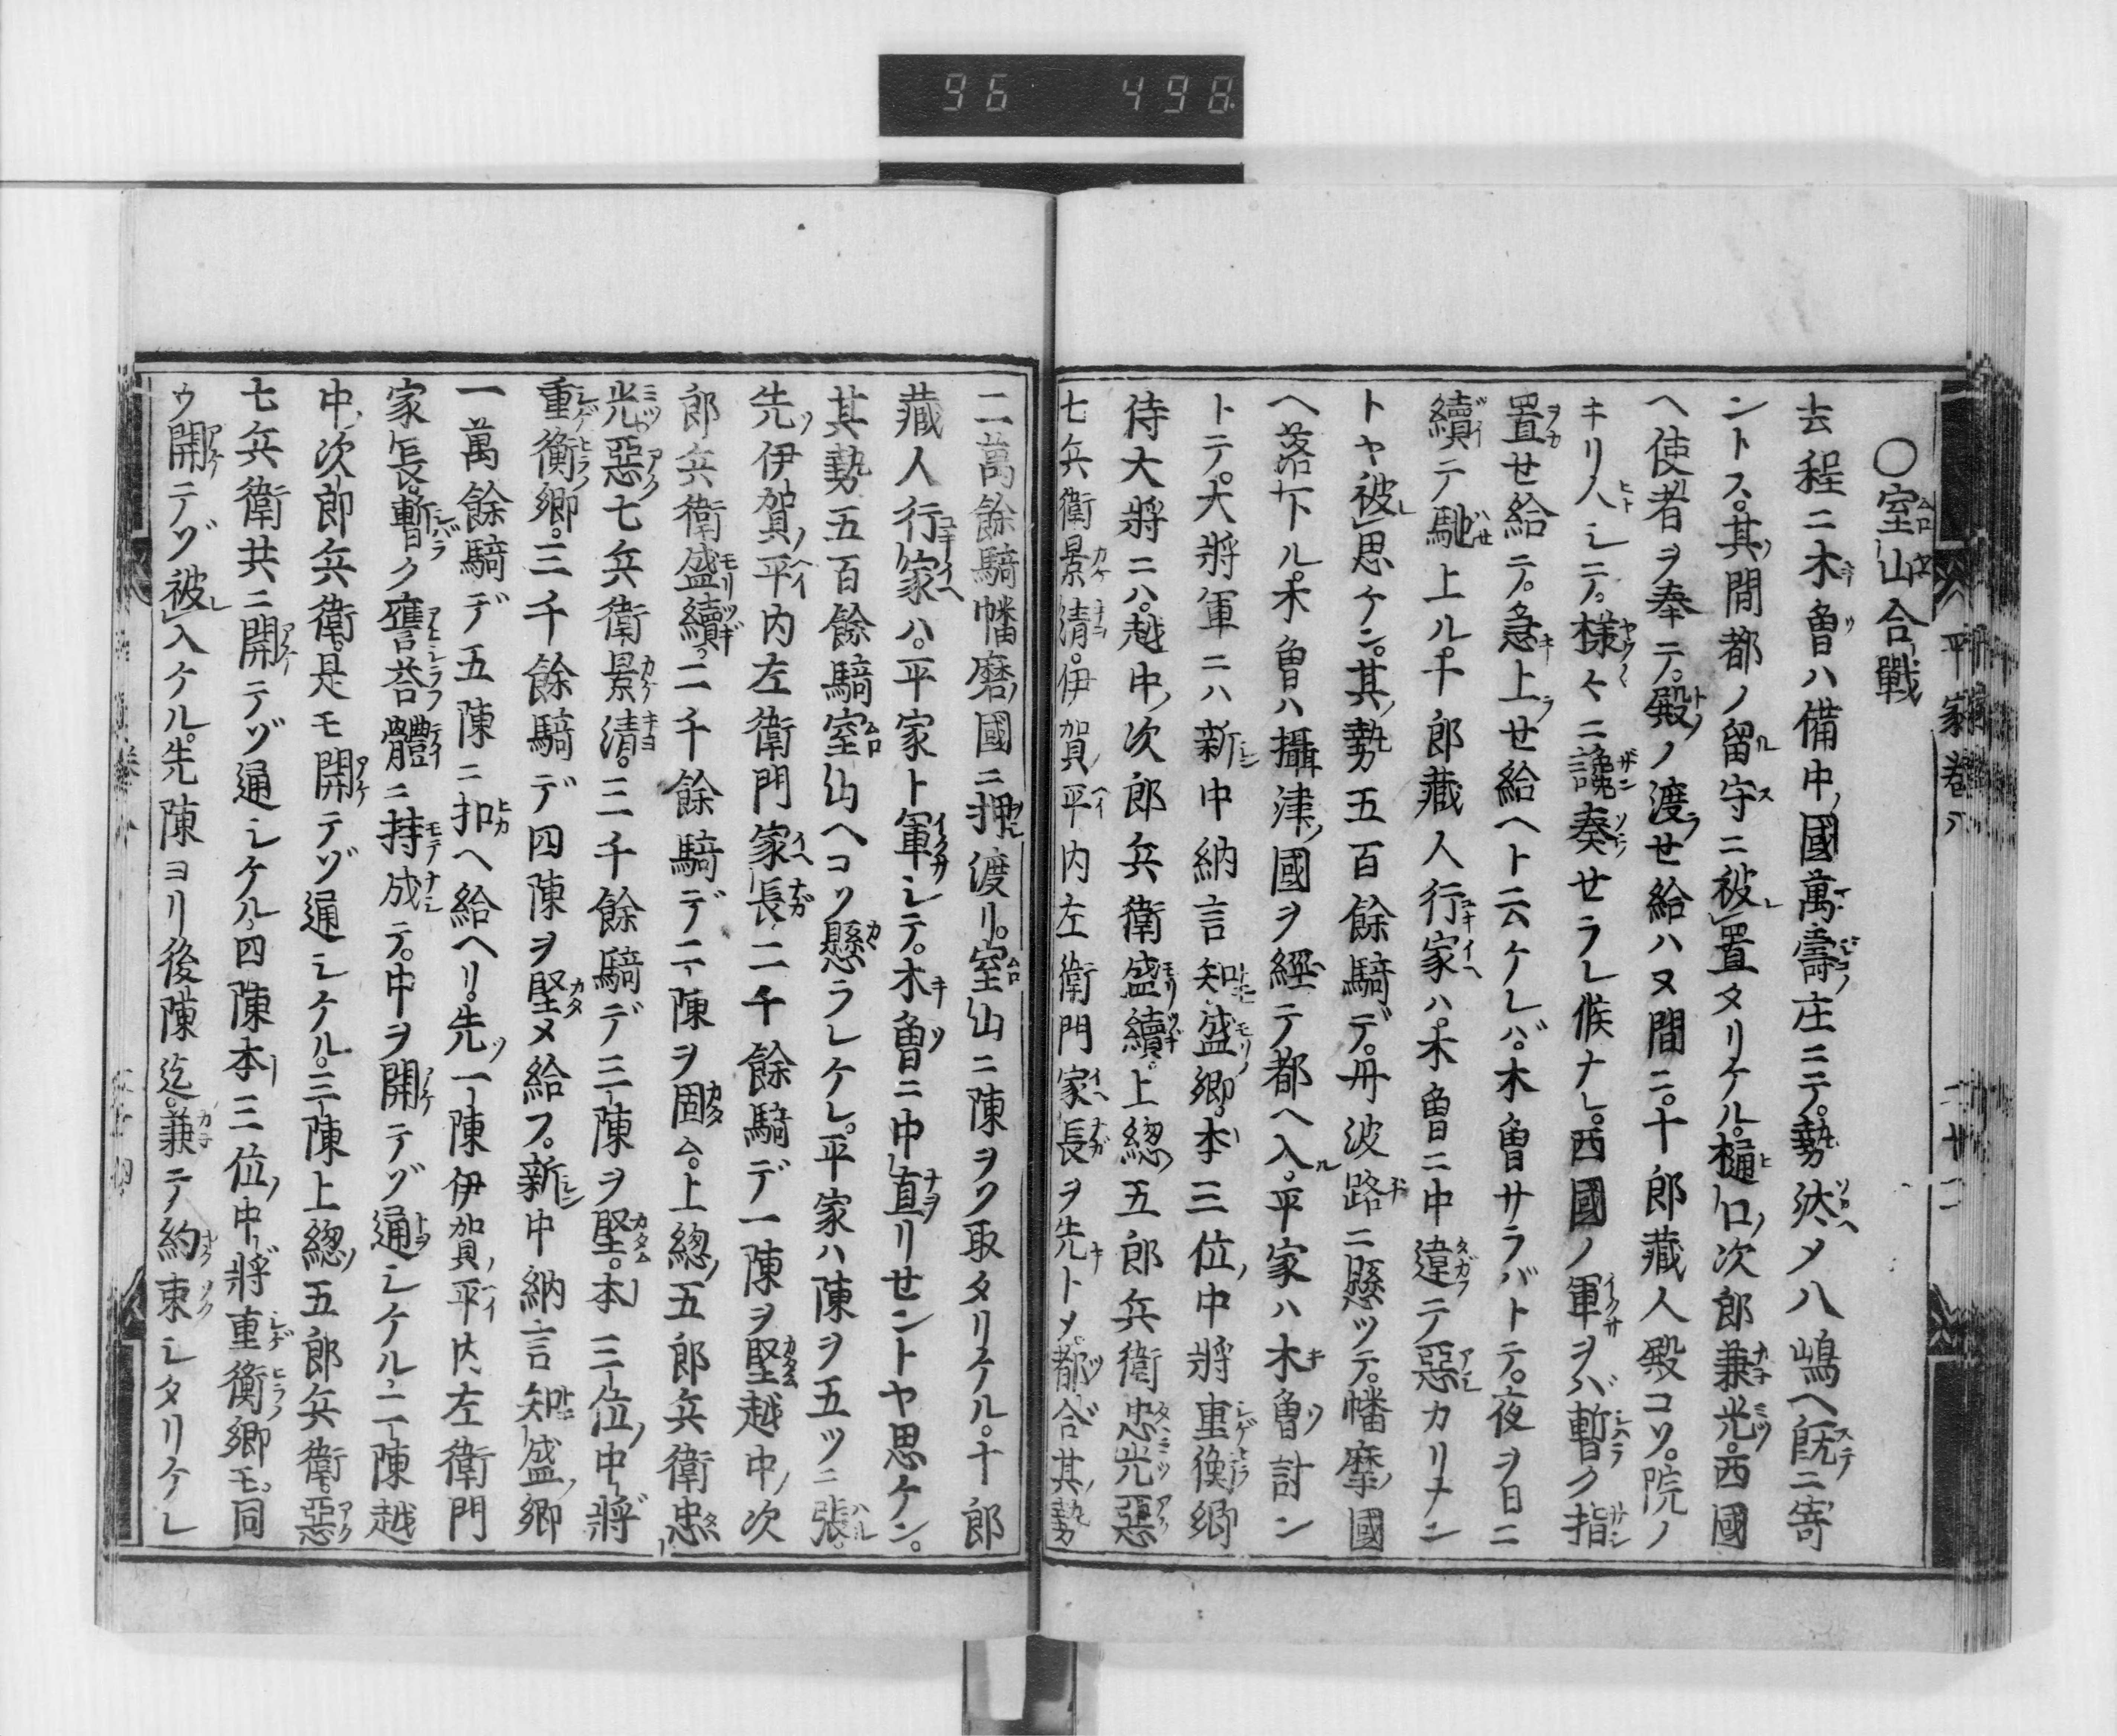 96 498
平家卷八
○室山合戰
去程ニ木曾ハ備中ノ國萬壽ノ庄ニテ。勢汰メ八嶋ヘ既ニ寄
ントス。其ノ間都ノ留守ニ被置タリケル。樋口ノ次郎兼光。西國
ヘ使者ヲ奉テ。殿ノ渡セ給ハヌ間ニ。十郎藏人殿コソ。院ノ
キリ人シテ。樣々ニ讒奏セラレ候ナレ。西國ノ軍ヲバ暫ク指
置セ給テ。急上セ給ヘト云ケレバ。木曾サラバトテ。夜ヲ日ニ
續テ馳上ル。十郎藏人行家ハ。木曾ニ中違テ惡カリナン
トヤ被思ケン。其ノ勢五百餘騎デ。丹波路ニ懸ツテ。幡摩ノ國
ヘ落下ル。木曾ハ攝津ノ國ヲ經テ都ヘ入。平家ハ木曾計ン
トテ。大將軍ニハ新中納言知盛ノ卿。本三位ノ中將重衡ノ卿
侍大將ニハ。越中ノ次郎兵衛盛續。上總ノ五郎兵衛忠光惡
七兵衛景清。伊賀ノ平内左衛門家長ヲ先トメ。都合其ノ勢
二萬餘騎幡磨ノ國ニ押渡リ。室山ニ陳ヲソ取タリケル。十郎
藏人行家ハ。平家ト軍シテ。木曾ニ中直リセントヤ思ケン。
其勢五百餘騎室山ヘコソ懸ラレケレ。平家ハ陳ヲ五ツニ張。
先ツ伊賀ノ平内左衛門家長二千餘騎デ一陳ヲ堅越中ノ次
郎兵衛盛續。二千餘騎デ二陳ヲ固ム。上總ノ五郎兵衛忠
光惡七兵衛景清。三千餘騎デ三陳ヲ堅。本三位ノ中將
重衡ノ卿。三千餘騎デ四陳ヲ堅メ給フ。新中納言知盛ノ卿
一萬餘騎デ五陳ニ扣ヘ給ヘリ。先ツ一陳伊賀ノ平内左衛門
家長。暫ク譍荅體ニ持成テ。中ヲ開テゾ通シケル。二陳越
中ノ次郎兵衛。是モ開テゾ通シケル。三陳上總ノ五郎兵衛。惡
七兵衛共ニ開テゾ通シケル。四陳本三位ノ中將重衡ノ卿モ。同
ウ開テゾ被入ケル。先陳ヨリ後陳迄。兼テ約束シタリケレ